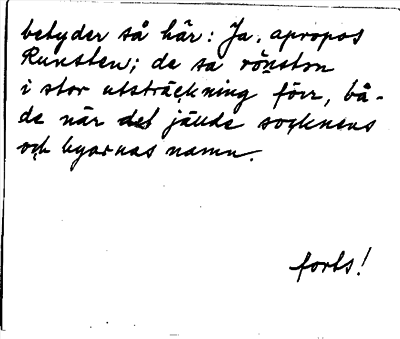 betyder så här: Ja, apropos
Runsten; de sa rönston
i stor utsträckning förr, bå-
de när det jällde socknens
och byarnas namn.
forts!